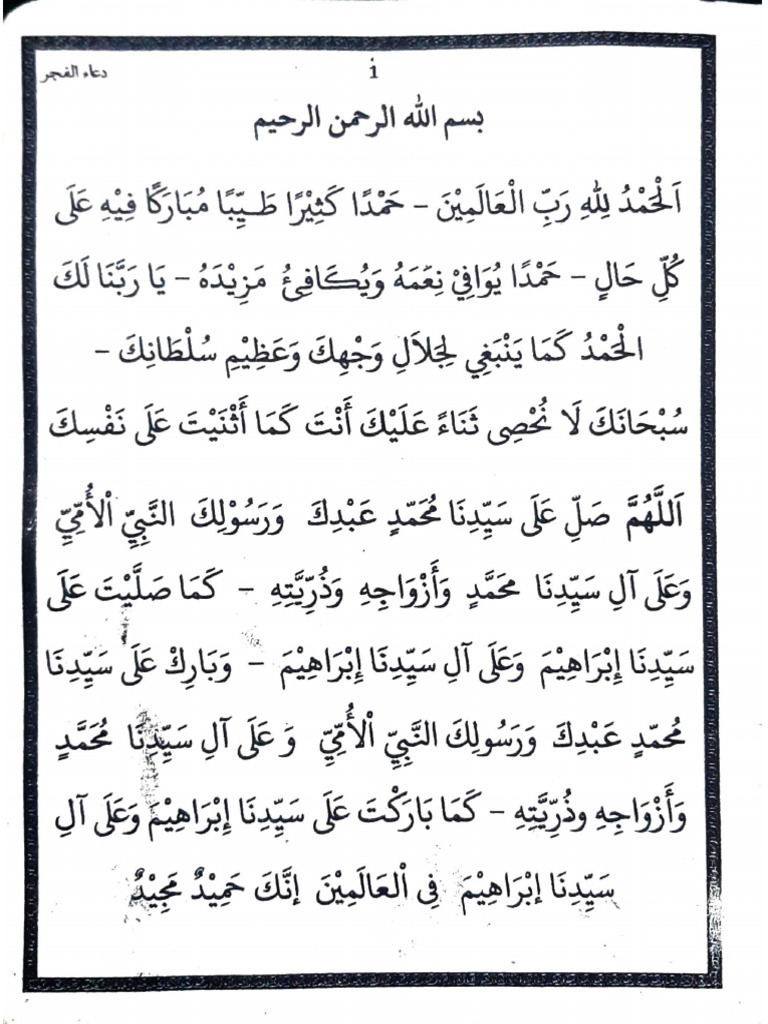 دعاء الفجر
1
بسم الله الرحمن الرحيم
اَلْحَمْدُ لِلّٰهِ رَبِّ الْعَالَمِيْنَ – حَمْدًا كَثِيْرًا طَـيِّبًا مُبَارَكًا فِيْهِ عَلَى
كُلِّ حَالٍ – حَمْدًا يُوَافِيْ نِعَمَهُ وَيُكَافِئُ مَزِيْدَهُ – يَا رَبَّنَا لَكَ
الْحَمْدُ كَمَا يَنْبَغِي لِجَلاَلِ وَجْهِكَ وَعَظِيْمِ سُلْطَانِكَ –
سُبْحَانَكَ لَا نُحْصِى ثَنَاءً عَلَيْكَ أَنْتَ كَمَا أَثْنَيْتَ عَلَى نَفْسِكَ
اَللَّهُمَّ صَلِّ عَلَى سَيِّدِنَا مُحَمَّدٍ عَبْدِكَ وَرَسُوْلِكَ النَّبِيِّ الْأُمِّيِّ
وَعَلَى آلِ سَيِّدِنَا مُحَمَّدٍ وَأَزْوَاجِهِ وَذُرِّيَّتِهِ – كَمَا صَلَّيْتَ عَلَى
سَيِّدِنَا إِبْرَاهِيْمَ وَعَلَى آلِ سَيِّدِنَا إِبْرَاهِيْمَ – وَبَارِكْ عَلَى سَيِّدِنَا
مُحَمَّدٍ عَبْدِكَ وَرَسُولِكَ النَّبِيِّ الْأُمِّيِّ وَ عَلَى آلِ سَيِّدِنَا مُحَمَّدٍ
وَأَزْوَاجِهِ وذُرِّيَّتِهِ – كَمَا بَارَكْتَ عَلَى سَيِّدِنَا إِبْرَاهِيْمَ وَعَلَى آلِ
سَيِّدِنَا إبْرَاهِيْمَ فِى الْعَالَمِيْنَ إنَّكَ حَمِيْدٌ مَجِيْدٌ